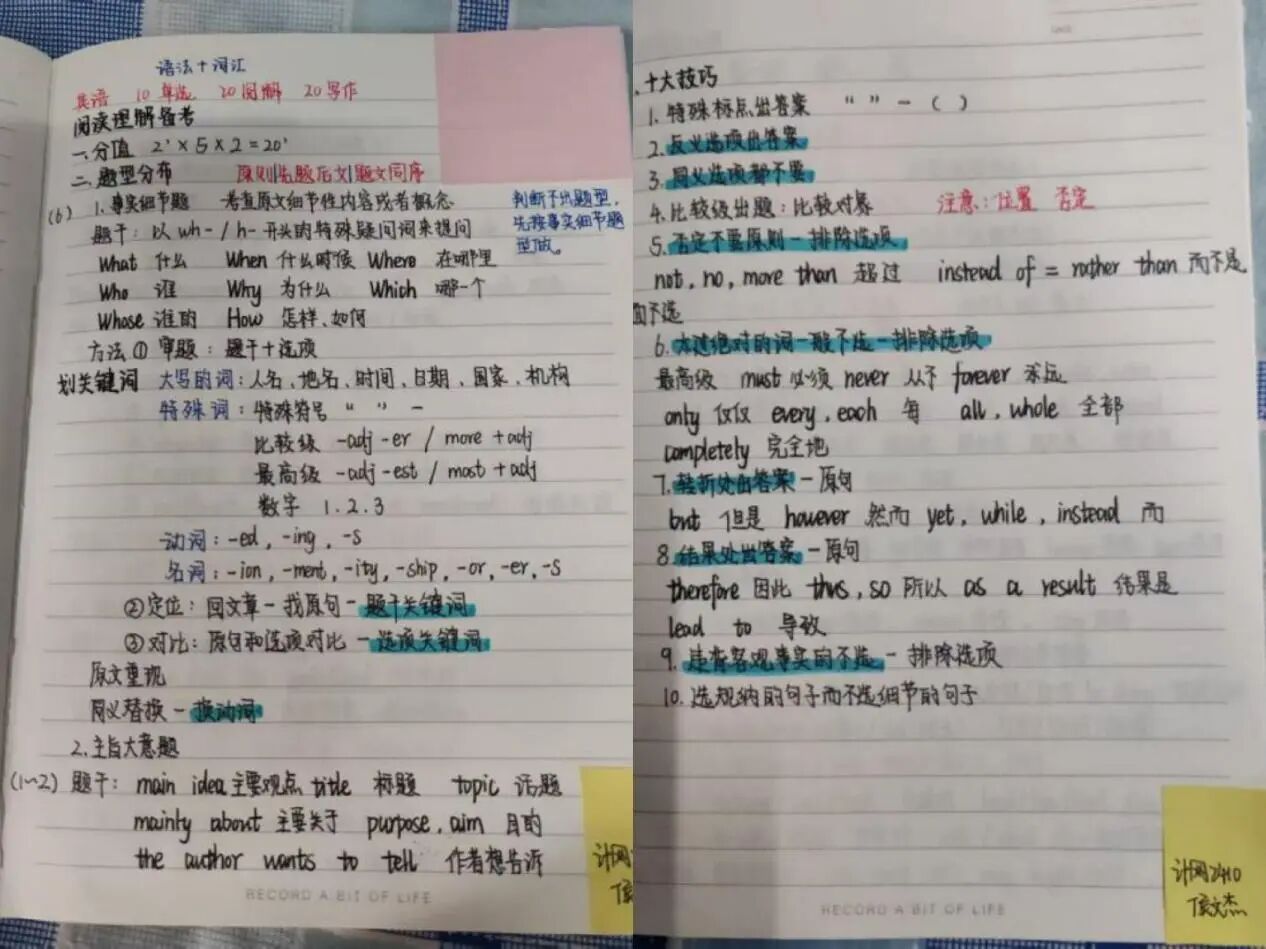 语法+词汇
英语 10单选 20阅解 20写作
阅读理解备考
一.分值 2'×5×2=20'
二.题型分布 原则|先题后文|题文同序
(6) 1.事实细节题 考查原文细节性内容或者概念
判断不出题型,
先按事实细节题
型做。
题干:以wh-/h-开头的特殊疑问词来提问
What 什么 When 什么时候 Where 在哪里
Who 谁 Why 为什么 Which 哪一个
Whose 谁的 How 怎样、如何
方法① 审题:题干+选项
划关键词 大写的词:人名、地名、时间、日期、国家、机构
特殊词:特殊符号 “ ” —
比较级 -adj -er / more +adj
最高级 -adj -est / most +adj
数字 1.2.3
动词:-ed, -ing, -s
名词:-ion, -ment, -ity, -ship, -or, -er, -s
②定位:回文章-找原句-题干关键词
③对比:原句和选项对比-选项关键词
原文重现
同义替换-换动词
2.主旨大意题
(1~2) 题干: main idea 主要观点 title 标题 topic 话题
mainly about 主要关于 purpose, aim 目的
the author wants to tell 作者想告诉
RECORD A BIT OF LIFE
计网
十大技巧
1.特殊标点出答案 “ ” — ( )
2.反义选项出答案
3.同义选项都不要
4.比较级出题:比较对象 注意:位置 否定
5.否定不要原则-排除选项
not, no, more than 超过 instead of = rather than 而不是
而不选
6.太过绝对的词一般不选-排除选项
最高级 must 必须 never 从不 forever 永远
only 仅仅 every, each 每 all, whole 全部
completely 完全地
7.转折处出答案-原句
but 但是 however 然而 yet, while, instead 而
8.结果处出答案-原句
therefore 因此 thus, so 所以 as a result 结果是
lead to 导致
9.违背客观事实的不选-排除选项
10.选规纳的句子而不选细节的句子
RECORD A BIT OF LIFE
计网2410
侯文杰